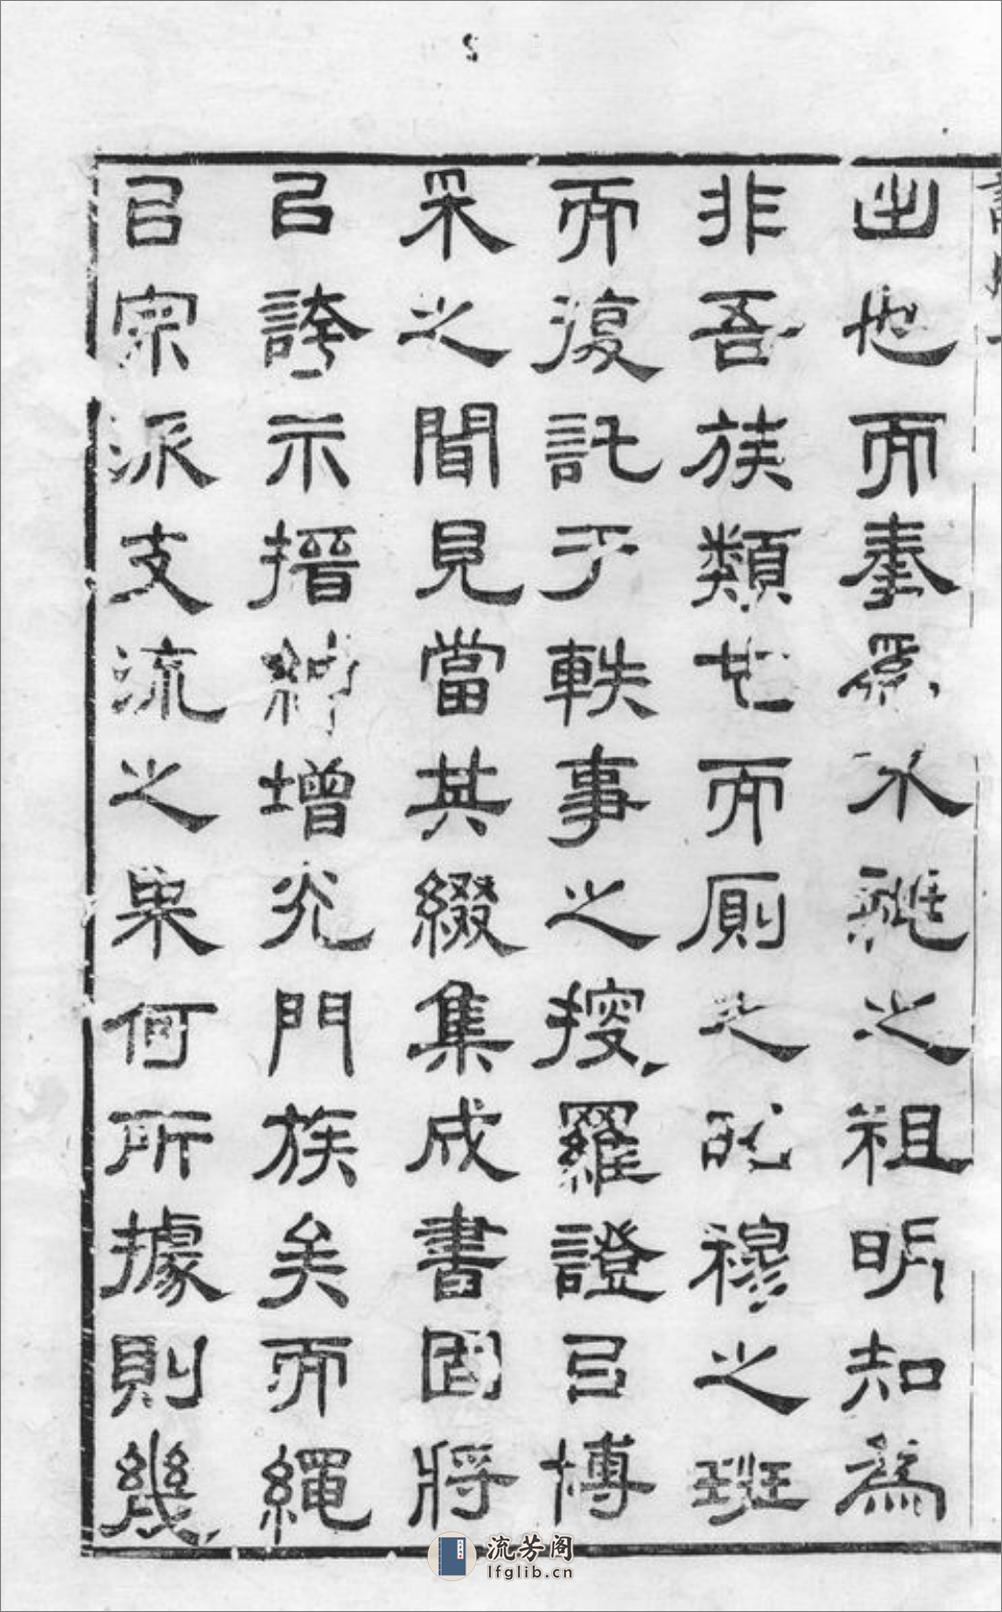 2
出也而奉爲不祧之祖明知爲
非吾族類也而廁之昭穆之班
而復託于軼事之搜羅證㠯博
采之聞見當其綴集成書固將
㠯誇示搢紳增光門族矣而繩
㠯宗派支流之果何所據則幾
流芳阁
lfglib.cn